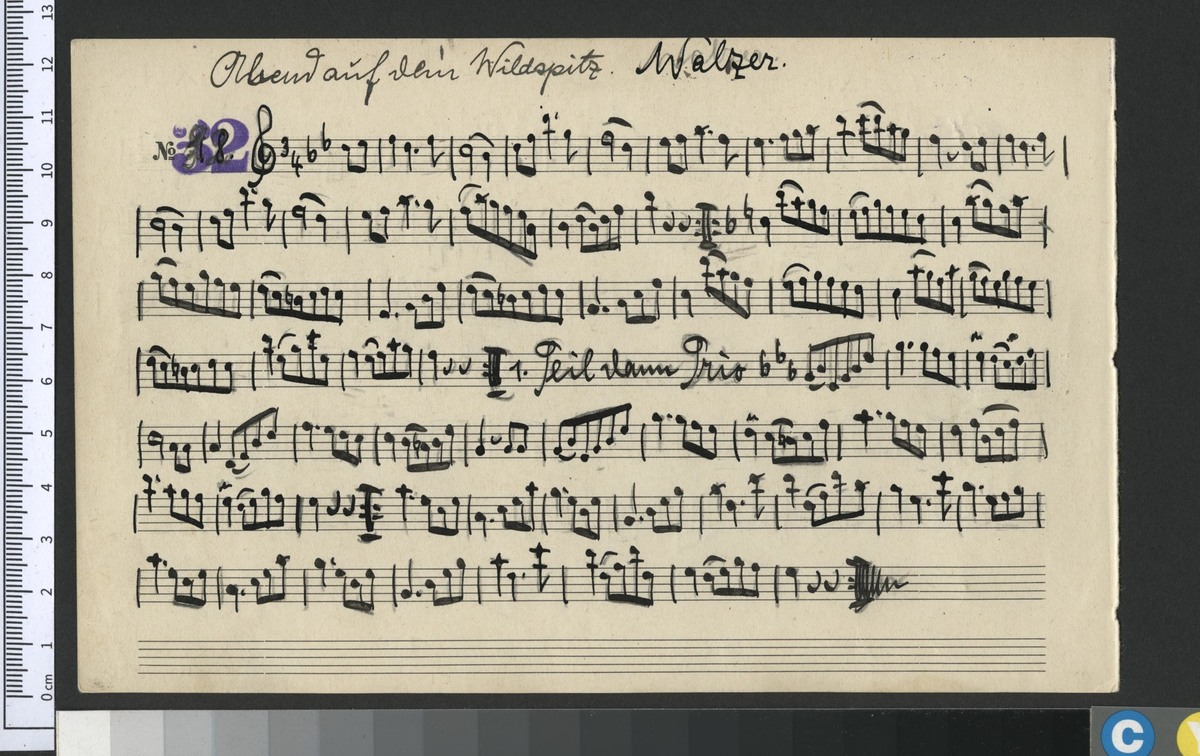 Abend auf dem Wildspitz. Walzer.
No 32
3 4
1. Teil dann Trio
13
12
11
10
9
8
7
6
5
4
3
2
1
0 cm
C
Y